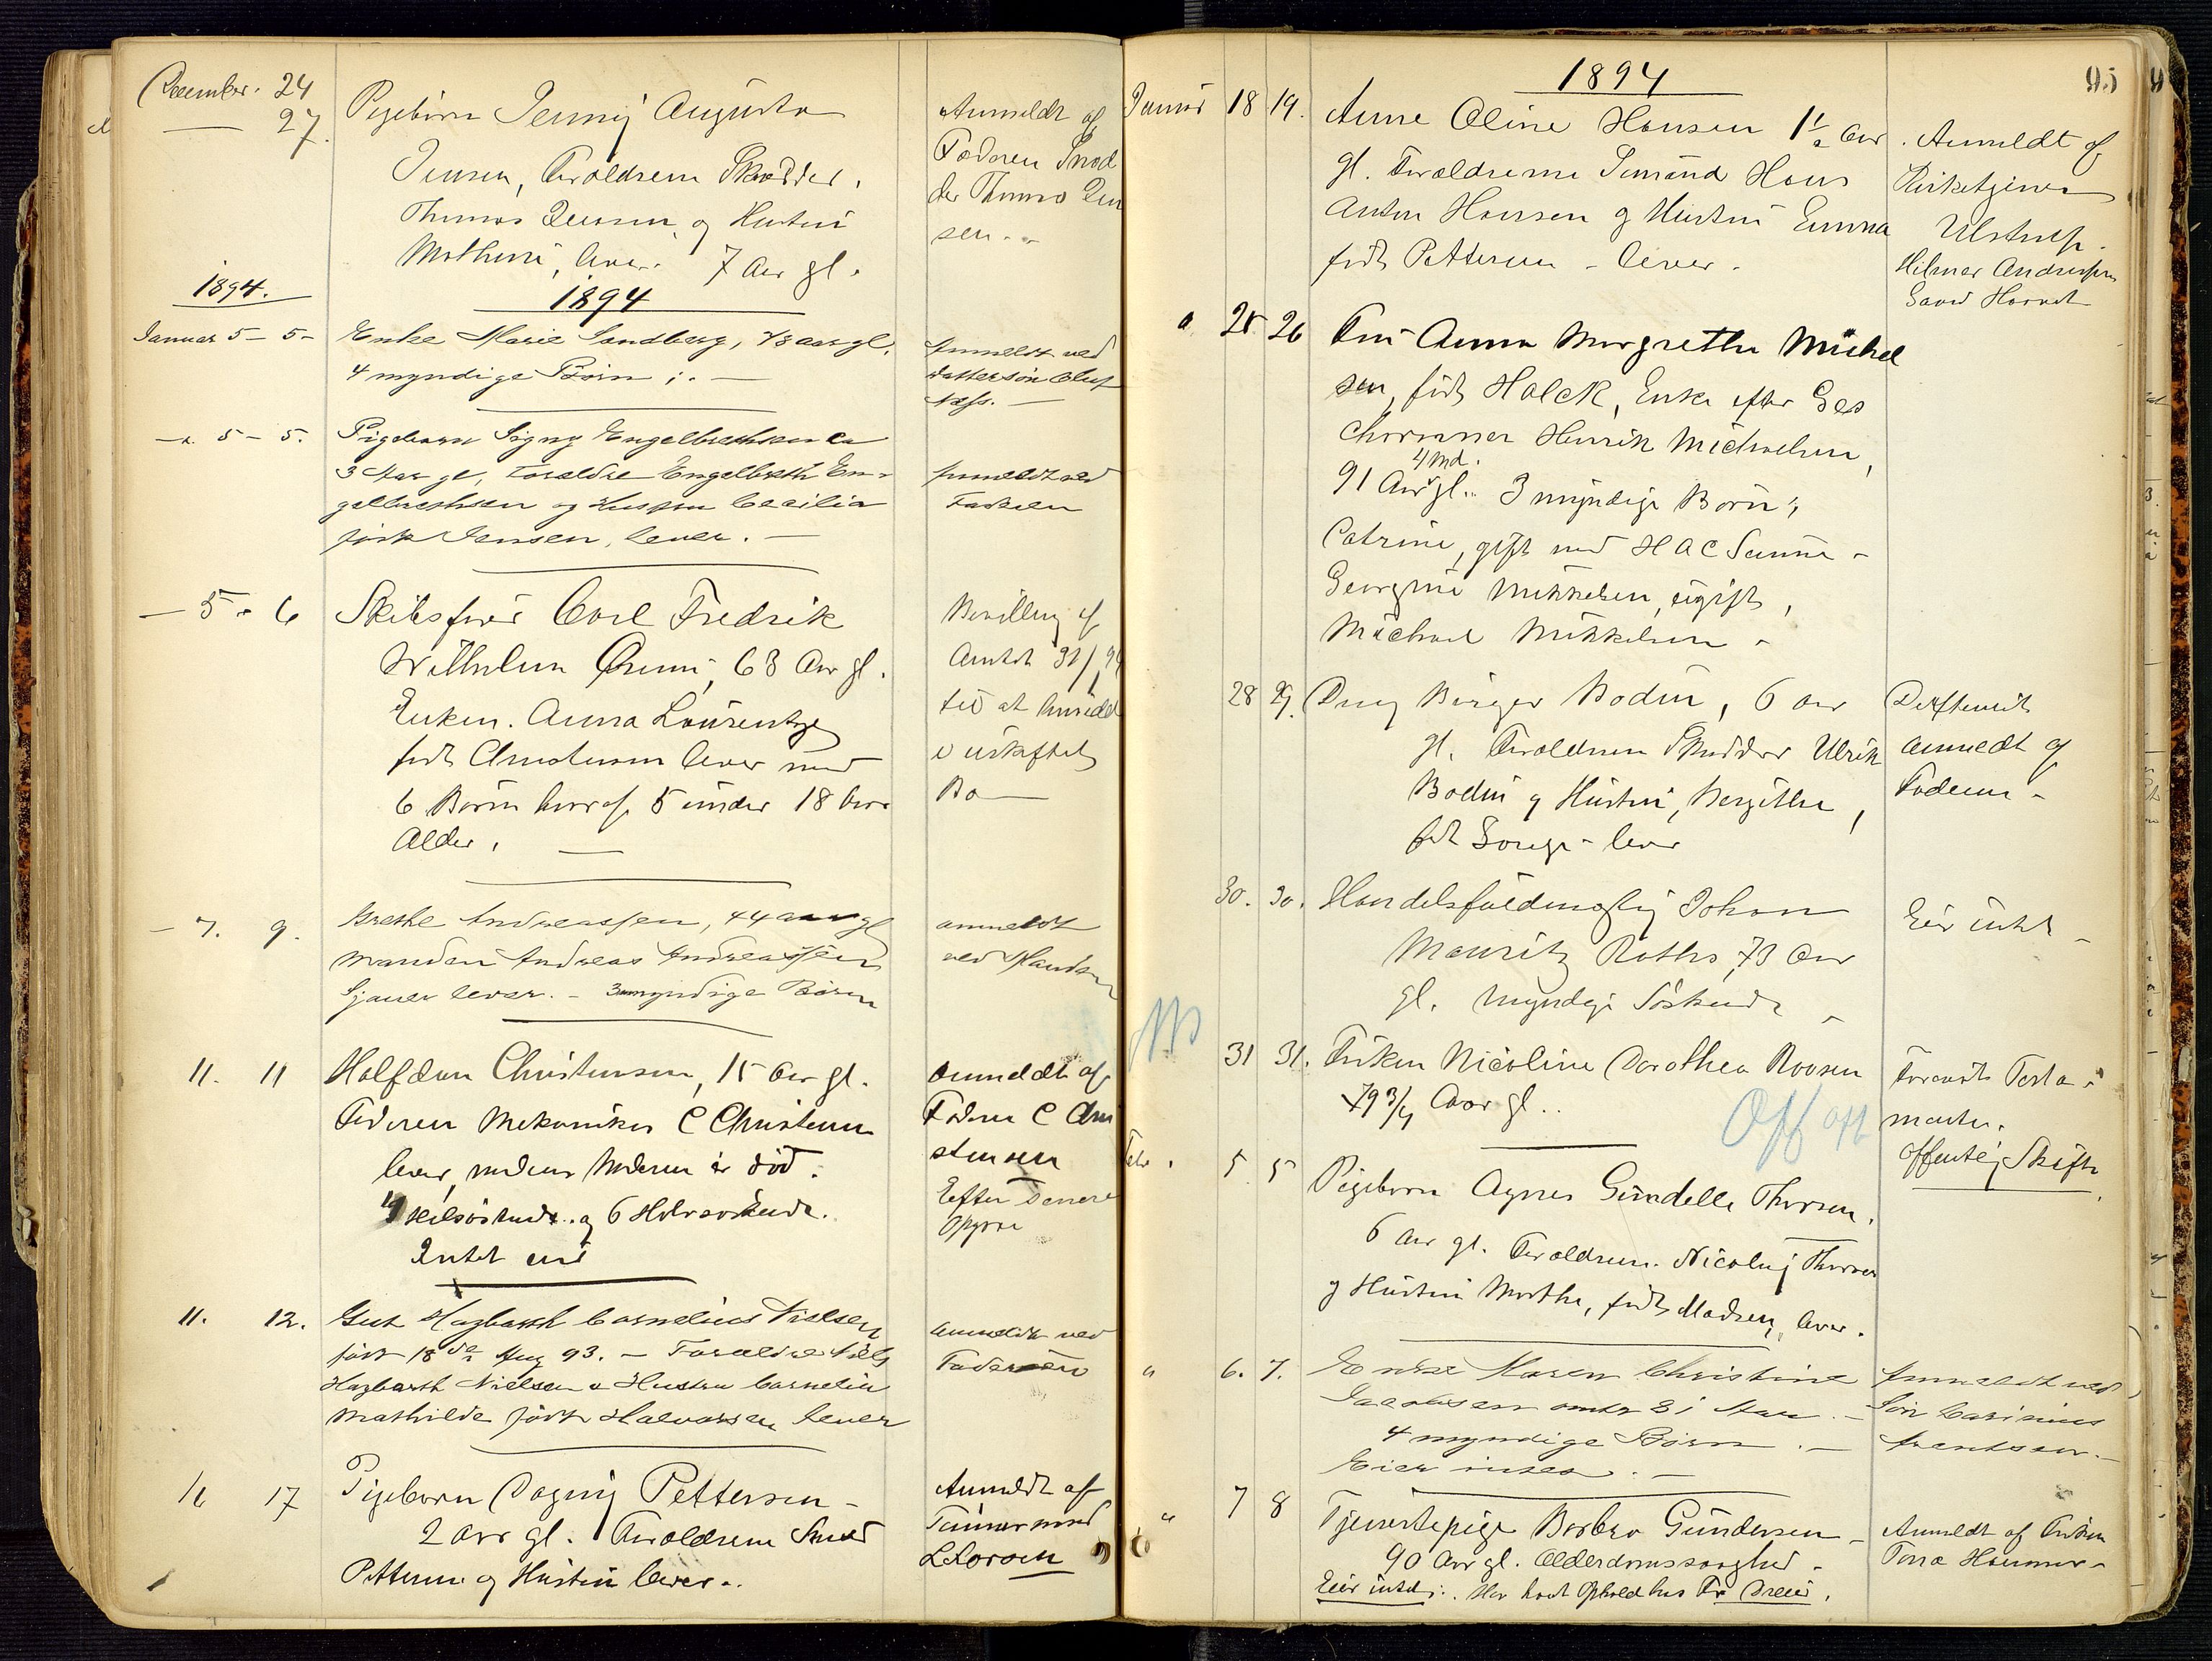 December. 24
— 27.
Pigebørn Jenny Augusta
Jensen, Forældrene Skrædder,
Thomas Jensen og Hustru
Mathea, lever. 7 Aar gl.
Anmeldt af
Faderen Skræd
der Thomas Jen
sen.
1894.
1894
Januar 5 – 5 –
Enke Marie Sandberg, 73 aar gl.
4 myndige Børn ;. —
Anmeldt ved
Dattersøn Oluf
Næss. —
— " 5 – 5.
Pigebarn Signy Engelbrethsen ca
3 Aar gl, Forældre Engelbreth En-
gelbrethsen og Hustru Cecilia
født Jensen, lever. —
Anmeldt ved
Faderen
— 5 " 6
Skibsfører Carl Fredrik
Wilhelm 63 Aar gl.
Enken. Anna Laurentze
født Christensen lever med
6 Børn hvoraf 5 under 18 Aars
Alder, —
Bevilling af
Amtet 31/1 94
til at hensidde
i uskiftet
Bo —
– 7. 9.
Grethe Andreassen, 44 aar gl
Manden Andreas Andreassen
Sjauer lever. – 3 umyndige Børn
anmeldt
ved Manden
11. 11
Halfdan Christensen, 15 Aar gl.
Faderen Mekaniker C Christensen
lever, medens Moderen er død.
Helsøskende og 6 Halvsøskende.
Intet eies
Anmeldt af
Faderen C Chri
stensen
Efter senere
Opgave
11. 12.
Gut Hagbarth Cornelius Nielsen
født 18de Aug 93. – Forældre Niels
Hagbarth Nielsen & Hustru Cornelia
Mathilde født Halvorsen lever
Anmeldt ved
Faderen
16 17
Pigebarn Dagny Pettersen –
2 Aar gl. Forældrene Smed
Pettersen og Hustru lever.
Anmeldt af
Tømmermand
L Larsen
1894
95
Januar 18 19.
Anne Oline Hansen 1½ Aar
gl. Forældrene Sømand Hans
Anton Hansen og Hustru Emma
født Pettersen – lever.
Anmeldt af
Kirketjener
Ulstrup.
Hilmar Andersen
" 25 26
Fru Anna Margrethe Michel
sen, født Holck, Enke efter Ges
chworner Henrik Michelsen,
4 Md.
91 Aar gl.. 3 myndige Børn;
Catrine, gift med H A C Sunne –
Georgine Mikkelsen, ugift,
Michael Mikkelsen –
28 29.
Dreng Birger Bodin, 6 aar
gl. Forældrene Skrædder Ulrik
Bodin og Hustru, Bergithe,
født Sørensen – lever
anmeldt af
Faderen –
30. 30.
Handelsfuldmægtig Johan
Mauritz Raths, 73 Aar
gl. Myndige Søskende –
Eier intet –
31 31.
Frøken Nicoline Dorothea Roosen
79 3/4 Aar gl..
Off off
Testa-
mente.
Offentlig Skifte.
Febr. 5 5
Pigebarn Agnes Gundelle Thorsen.
6 Aar gl. Forældrene. Nicolaj Thorsen
og Hustru Marthe, født Madsen, lever.
" 6. 7.
Enke Maren Christine
Jacobsen omtr 81 Aar. –
4 myndige Børn . –
Eier intet. –
Anmeldt ved
Søn Carinius
Arentsen. –
" 7 8
Tjenestepige Barbro Gundersen –
90 Aar gl. Alderdomssvaghed –
Eier intet;. Har havt Ophold hos Fr Dreier.
Anmeldt af Frøken
Thora Hammer –